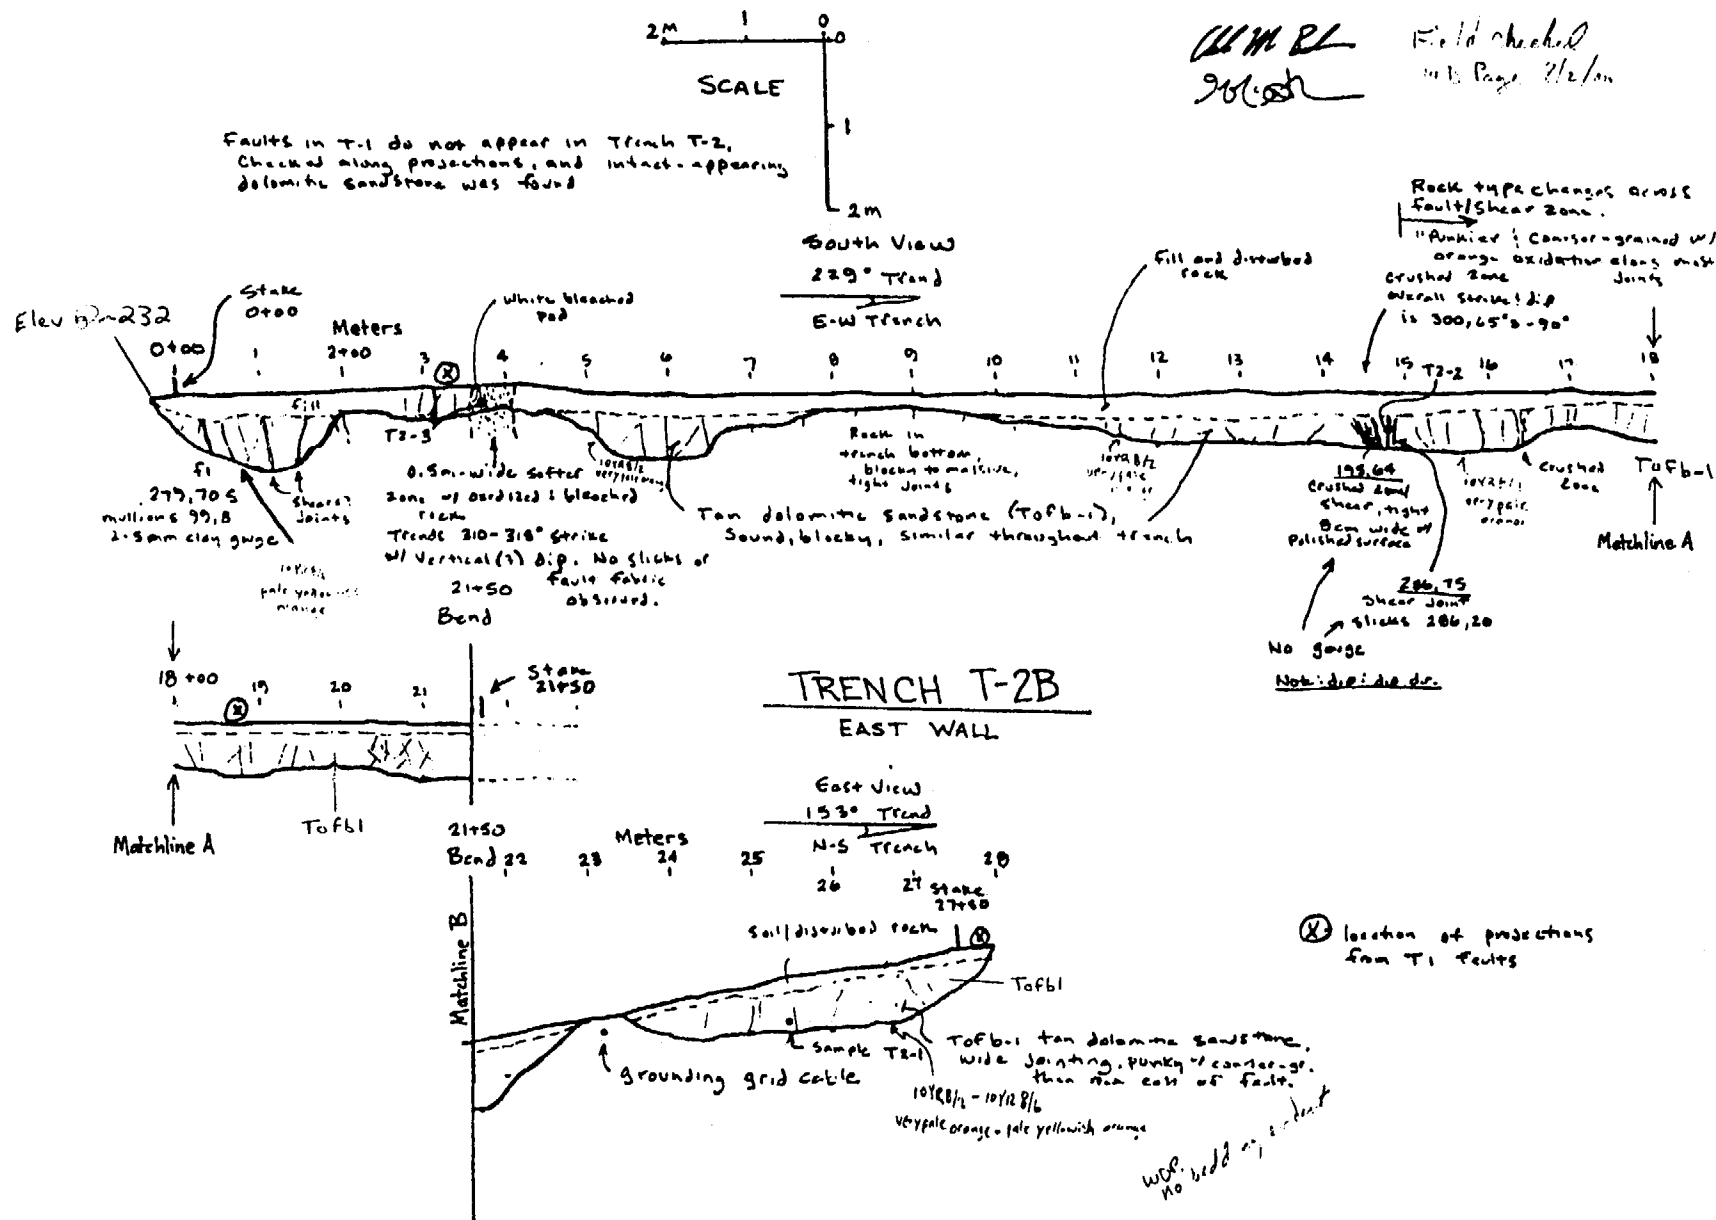 2M 1 0
0
SCALE
1
2m
Field checked
Page
Faults in T-1 do not appear in Trench T-2.
Checked along projections, and intact-appearing
dolomitic sandstone was found
South View
229° Trend
E-W Trench
Fill and disturbed
rock
Rock type changes across
fault/shear zone.
"Punkier & coarser-grained w/
orange oxidation along most
Joints
Crushed zone
overall strike & dip
is 300, 65°s-90°
Elev
Stake
0+00
White bleached
pod
Meters
0+00 1 2+00 3 4 5 6 7 8 9 10 11 12 13 14 15 16 17 18
X
T2-2
fill
T2-3
f1
279, 70 S
mullions 99, 8
2-5mm clay gouge
Shears?
Joints
10YR8/6
pale yellowish
orange
0.5m-wide softer
zone w/ oxidized & bleached
rock
Trends 310-318° strike
w/ vertical (?) dip. No slicks or
fault fabric
observed.
10YR8/2
very pale orange
Rock in
trench bottom,
blocky to massive,
tight joints
Tan dolomitic sandstone (Tofb-1),
Sound, blocky, similar throughout trench
10YR8/2
very pale
orange
195,64
Crushed zone/
shear, tight
8cm wide w/
Polished surface
10YR8/2
very pale
orange
Crushed
Zone
Tofb-1
Matchline A
286,75
Shear Joint
slicks 286,20
No gouge
Note: dip; dip dir.
21+50
Bend
18+00 19 20 21
X
Stake
21+50
Tofb1
Matchline A
TRENCH T-2B
EAST WALL
East View
153° Trend
N-S Trench
21+50
Bend 22 23 24 25 26 27 28
Meters
Stake
27+80
X
Matchline B
Soil/disturbed rock
Tofb1
Sample T2-1
grounding grid cable
Tofb-1 tan dolomitic sandstone,
wide jointing, punky & coarser-gr.
than rock east of fault.
10YR8/2 - 10YR8/6
very pale orange - pale yellowish orange
X location of projections
from T1 faults
no bedding evident